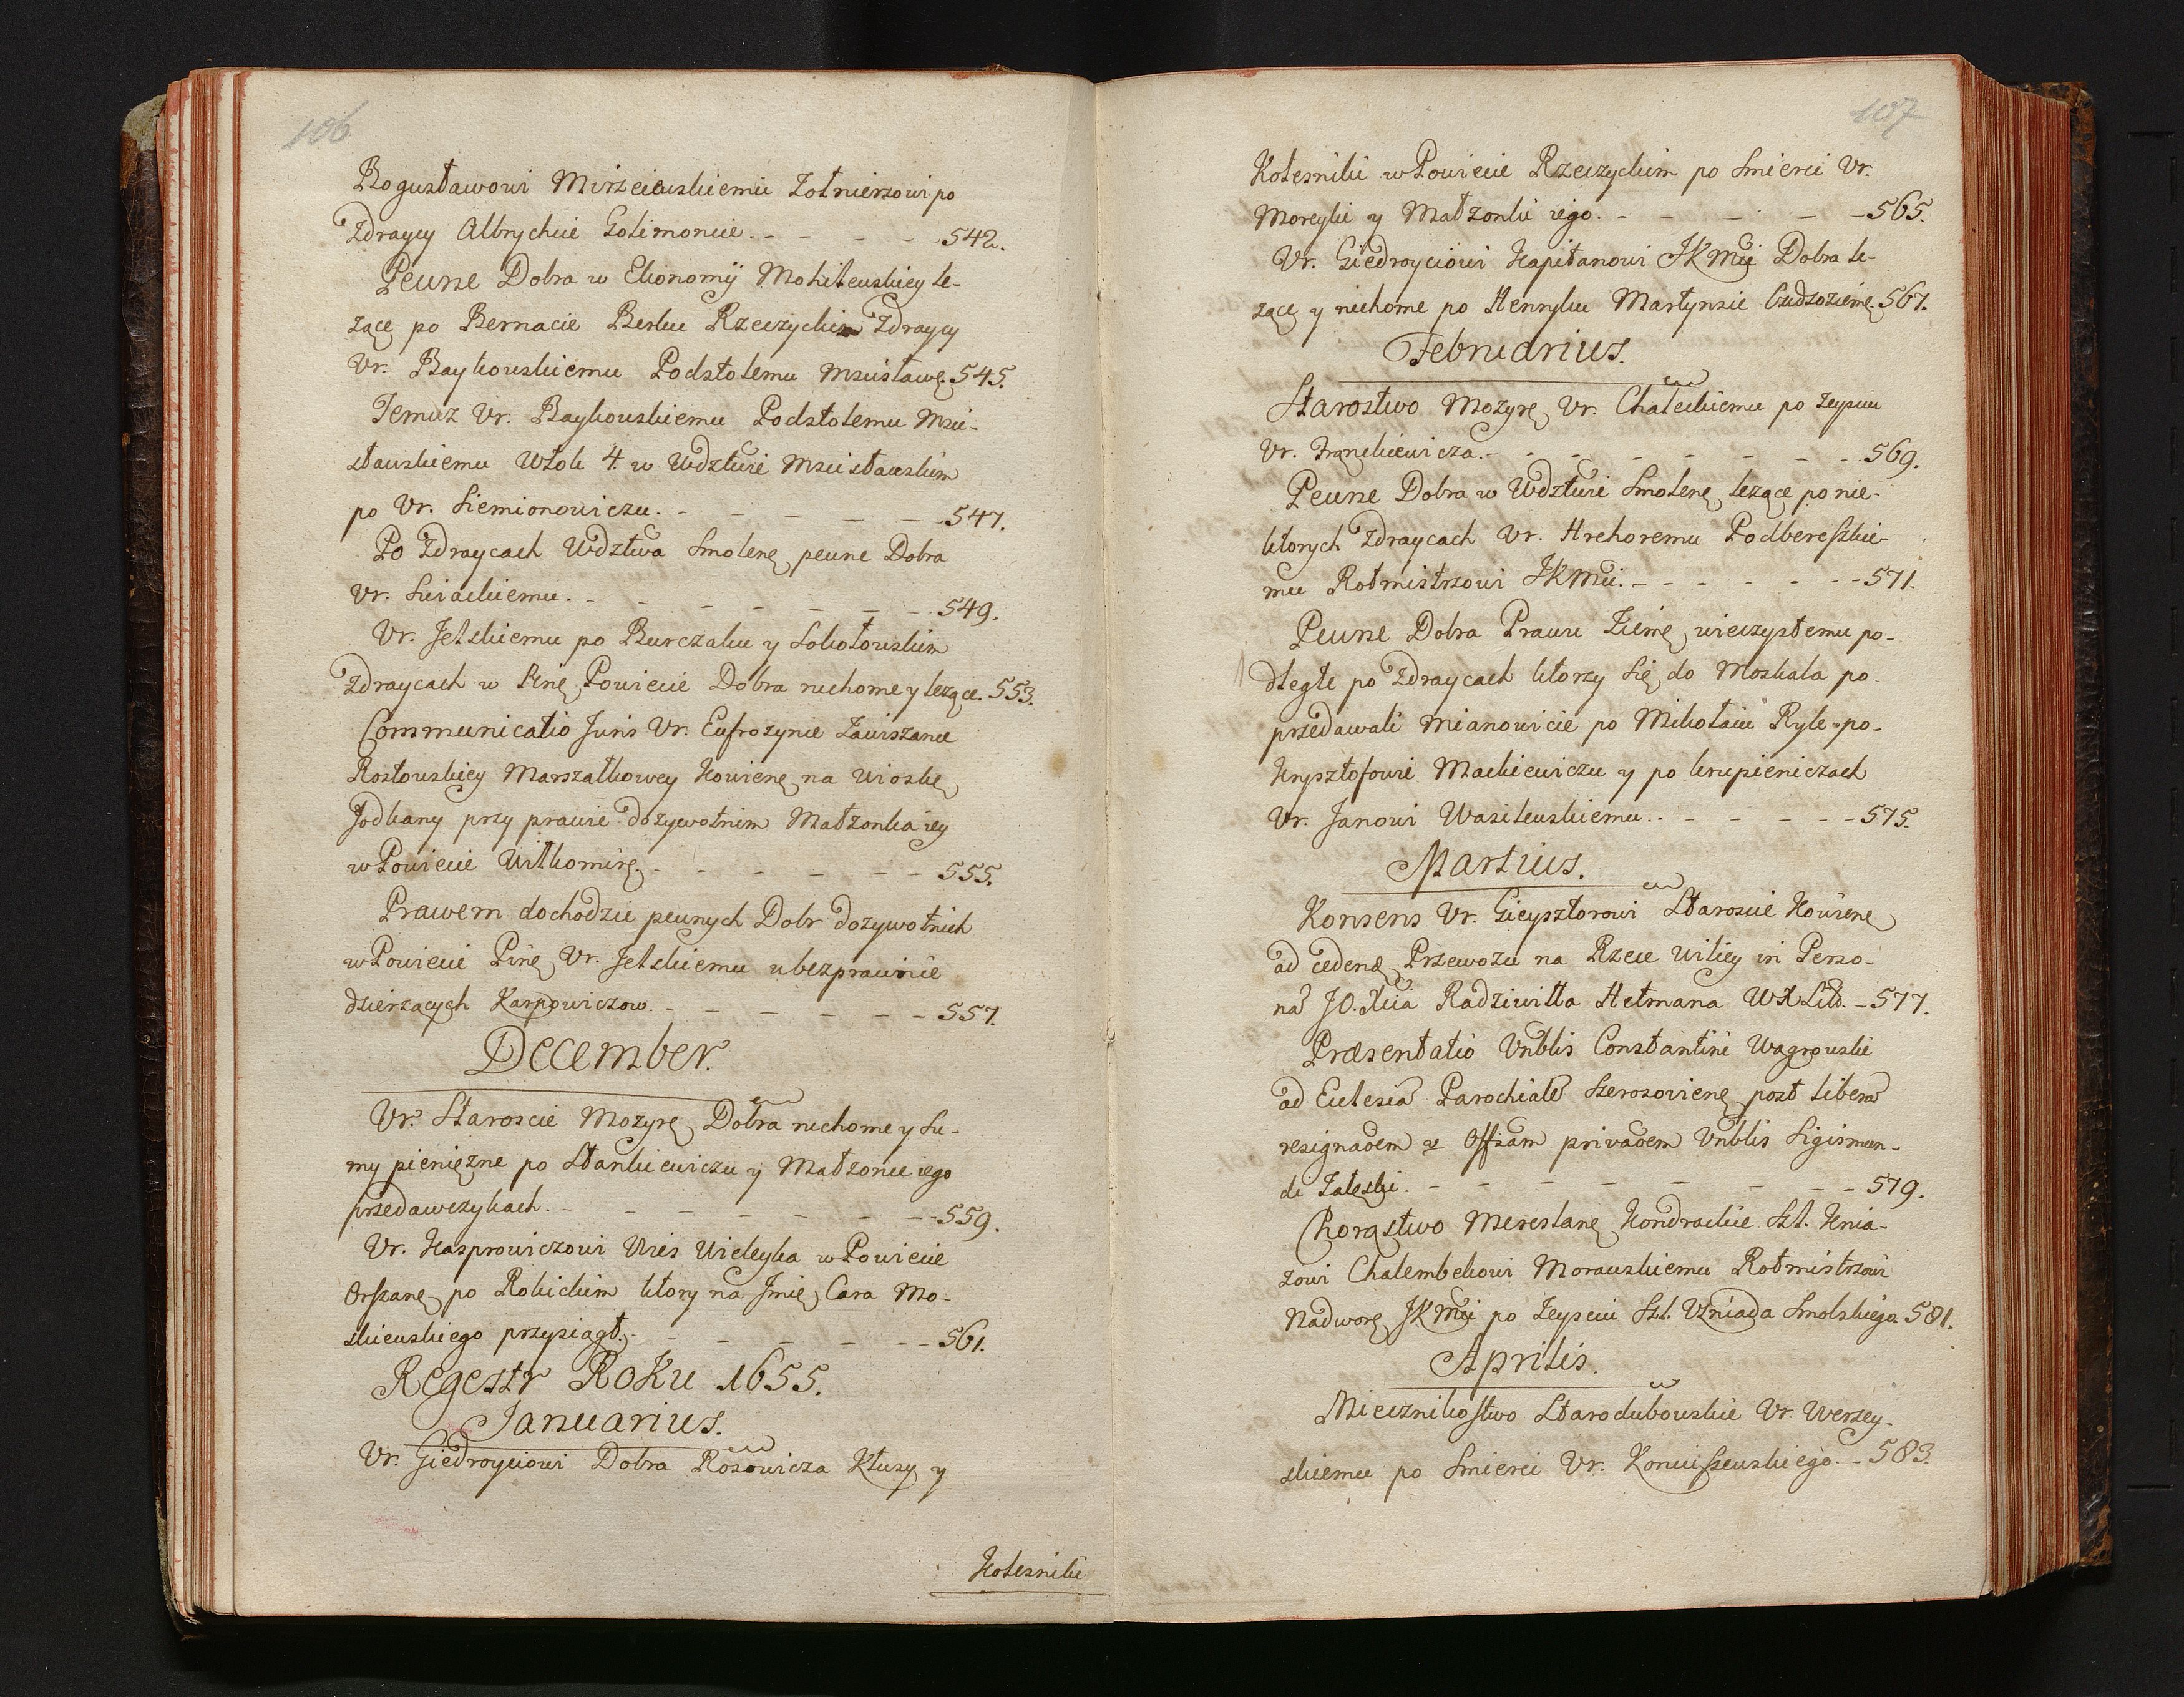 106
Bogusławowi Mirzeiewskiemu Zołnierzowi po
Zdraycy Albrychcie Golimoncie. - - - - 542.
Pewne Dobra w Ekonomij Mohilewskiey le-
żącę po Bernacie Berku Rzeczyckim Zdraycy
Vr. Baykowskiemu Podstolemu Mscisławę. 545.
Temuz Vr. Baykowskiemu Podstolemu Msci-
sławskiemu Włok 4. w Wdztwie Mscisławskim
po Vr. Siemionowiczu. - - - - - 547.
Po Zdraycach Wdztwa Smolenę pewne Dobra
Vr. Swiackiemu. - - - - - - 549.
Vr. Jelskiemu po Burczaku y Sokołowskim
Zdraycach w Pinę Powiecie Dobra ruchome y leżące. 553.
Communicatio Juris Vr. Eufrozynie Zawiszance
Rosłowskiey Marszałkowey Kowienę na wioskę
Jodkany przy prawie dozywotnim Małzonka iey
w Powiecie Wiłkomirę. - - - - - 555.
Prawem dochodzic pewnych Dobr dozywotnich
w Powiecie Pinę Vr. Jelskiemu u bezprawnie
dzierżących Karpowiczow. - - - - - 557.
December.
Vr. Staroscie Mozyrę Dobra ruchome y Su-
my pienięzne po Stankiewiczu y Małzonce iego
przedawczykach. - - - - - - 559.
Vr. Kasprowiczowi Wies Wieleyka w Powiecie
Orszanę po Robickim ktory na Jmię Cara Mo-
skiewskiego przysiągł. - - - - - 561.
Regestr Roku 1655.
Januarius.
Vr. Giedroyciowi Dobra Rosowicza Kłusy y
Kolesniki
107
Kolesniki w Powiecie Rzeczyckim po Smierci Vr.
Moreyki y Małzonki iego. - - - - - 565.
Vr. Giedroyciowi Kapitanowi JKMci Dobra le-
zącę y ruchome po Henryku Martynsie Cudzoziemę. 567.
Februarius.
Starostwo Mozyrę Vr. Chaleckiemu po zeysciu
Vr. Frąnckiewicza. - - - - - - - 569.
Pewne Dobra w Wdztwie Smolenę leżące po nie-
ktorych Zdraycach Vr. Hrehoremu Podbereskie-
mu Rotmistrzowi JKMci. - - - - - 571.
Pewne Dobra Prawu Ziemę wieczystemu po-
dległe po Zdraycach ktorzy się do Moskala po
przedawali mianowicie po Mikołaiu Ryle po-
Krysztofowi Mackiewiczu y po Krupieniczach
Vr. Janowi Wasilewskiemu. - - - - 575.
Martius.
Konsens Vr. Gieysztorowi Staroscie Kowienę
ad cedendę Przewozu na Rzece Wiliey in Perso-
na JO. Xcia Radziwiłła Hetmana WXLitt. - 577.
Præsentatio Vnblis Constantini Wągrowski
ad Ecclesia Parochiale Szerszowienę post libera
resignaoem et Offsam privaoem Vnblis Sigismun-
di Zaleski. - - - - - - 579.
Chorąstwo Mereslanę Kondrackie Szl. Knia-
zowi Chalembekowi Morawskiemu Rotmistrzowi
Nadworę JKMci po Zeysciu Szl. Uzniada Smolskiego. 581.
Aprilis.
Miecznikostwo Starodubowskie Vr. Werzey-
skiemu po Smierci Vr. Koncissewskiego. - 583.